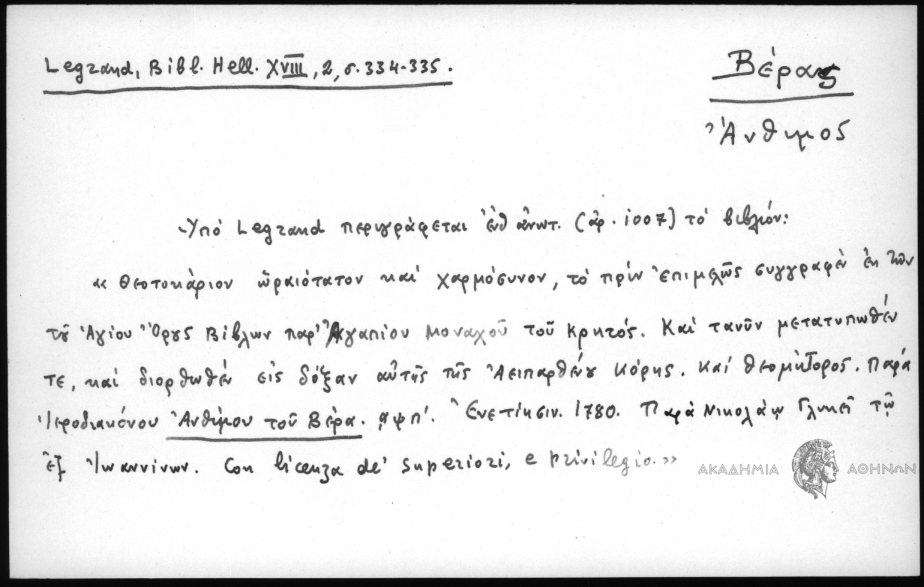 Legrand, Bibl. Hell. XVIII, 2, σ. 334-335.
Βέρας
Ἄνθιμος
Ὑπό Legrand περιγράφεται ἐνθ ἀνωτ. (ἀρ. 1007) τό βιβλίον:
« Θεοτοκάριον ὡραιότατον καί χαρμόσυνον, τό πρίν ἐπιμελῶς συγγραφέν ἐκ τῶν
τοῦ Ἁγίου Ὄρους Βίβλων παρ' Ἀγαπίου Μοναχοῦ τοῦ Κρητός. Καί τανῦν μετατυπωθέν
τε, καί διορθωθέν εἰς δόξαν αὐτῆς τῆς Ἀειπαρθένου Κόρης. Καί Θεομήτορος. Παρά
Ἱεροδιακόνου Ἀνθίμου τοῦ Βέρα. αψπ'. Ἐνετίησιν. 1780. Παρά Νικολάῳ Γλυκεῖ τῷ
ἐξ Ἰωαννίνων. Con licenza de' Superiori, e privilegio. »
ΑΚΑΔΗΜΙΑ ΑΘΗΝΩΝ